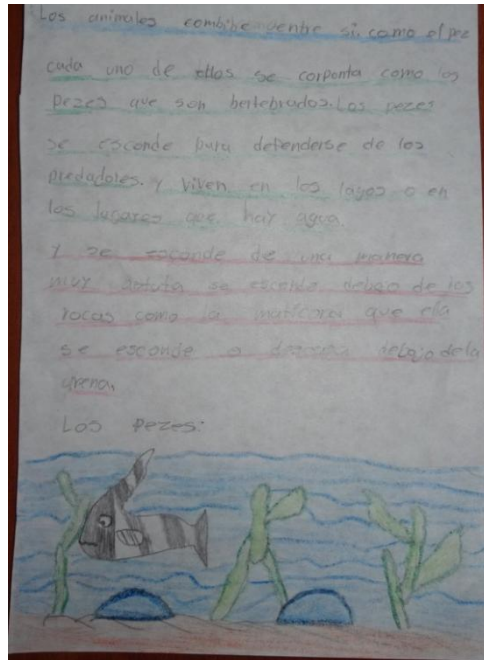 Los animales combibe entre si como el pez
cada uno de ellos se corponta como los
pezes que son bertebrados. Los pezes
se esconde para defenderse de los
predadores. Y viven en los lagos o en
los lugares que hay agua.
Y se esconde de una manera
muy astuta se esconde debajo de las
rocas como la que ella
se esconde o debajo de la
arena.
Los pezes: